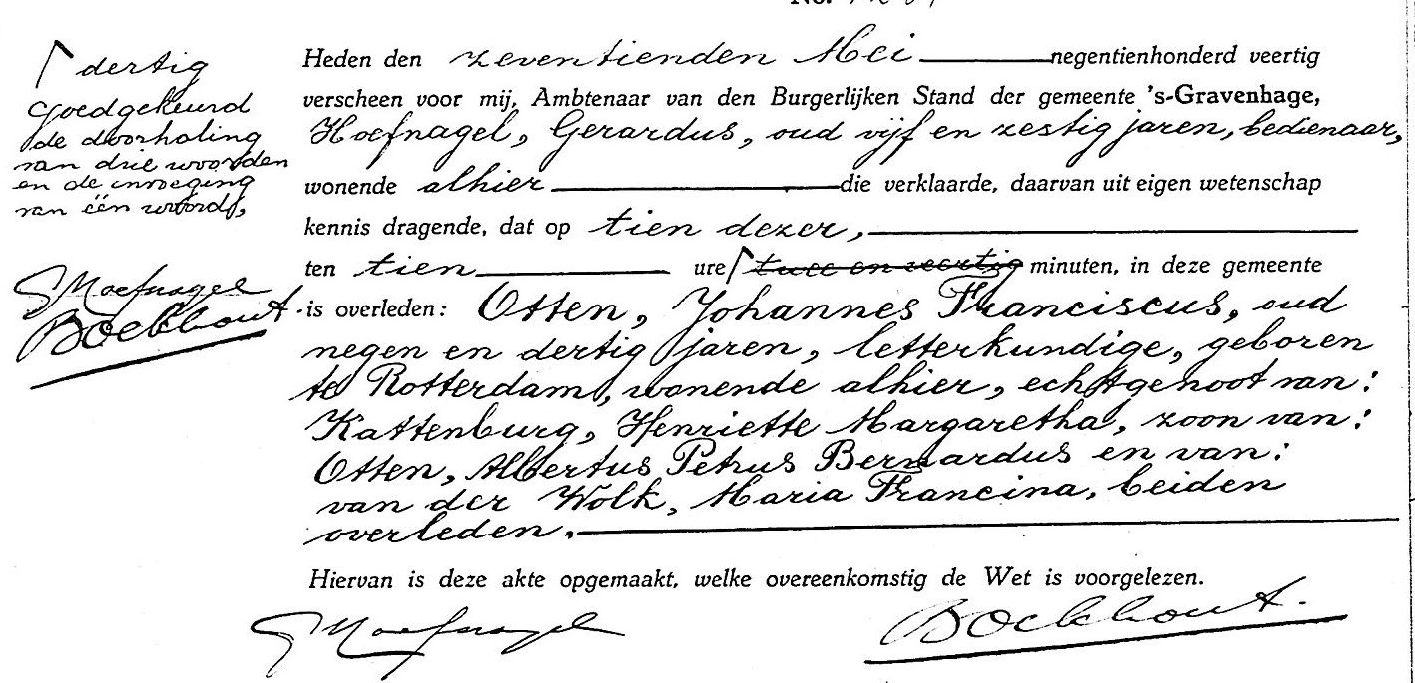 No.
Heden den zeventienden Mei negentienhonderd veertig
verscheen voor mij, Ambtenaar van den Burgerlijken Stand der gemeente 's-Gravenhage,
Hoefnagel, Gerardus, oud vijf en zestig jaren, bedienaar,
wonende alhier die verklaarde, daarvan uit eigen wetenschap
kennis dragende, dat op tien dezer,
ten tien ure twee en veertig minuten, in deze gemeente
is overleden: Otten, Johannes Franciscus, oud
negen en dertig jaren, letterkundige, geboren
te Rotterdam, wonende alhier, echtgenoot van:
Kattenburg, Henriette Margaretha, zoon van:
Otten, Albertus Petrus Bernardus en van:
van der Wolk, Maria Francina, beiden
overleden.
Hiervan is deze akte opgemaakt, welke overeenkomstig de Wet is voorgelezen.
G Hoefnagel
Boekhout.
dertig
Goedgekeurd
de doorhaling
van drie woorden
en de invoeging
van één woord,
G Hoefnagel
Boekhout